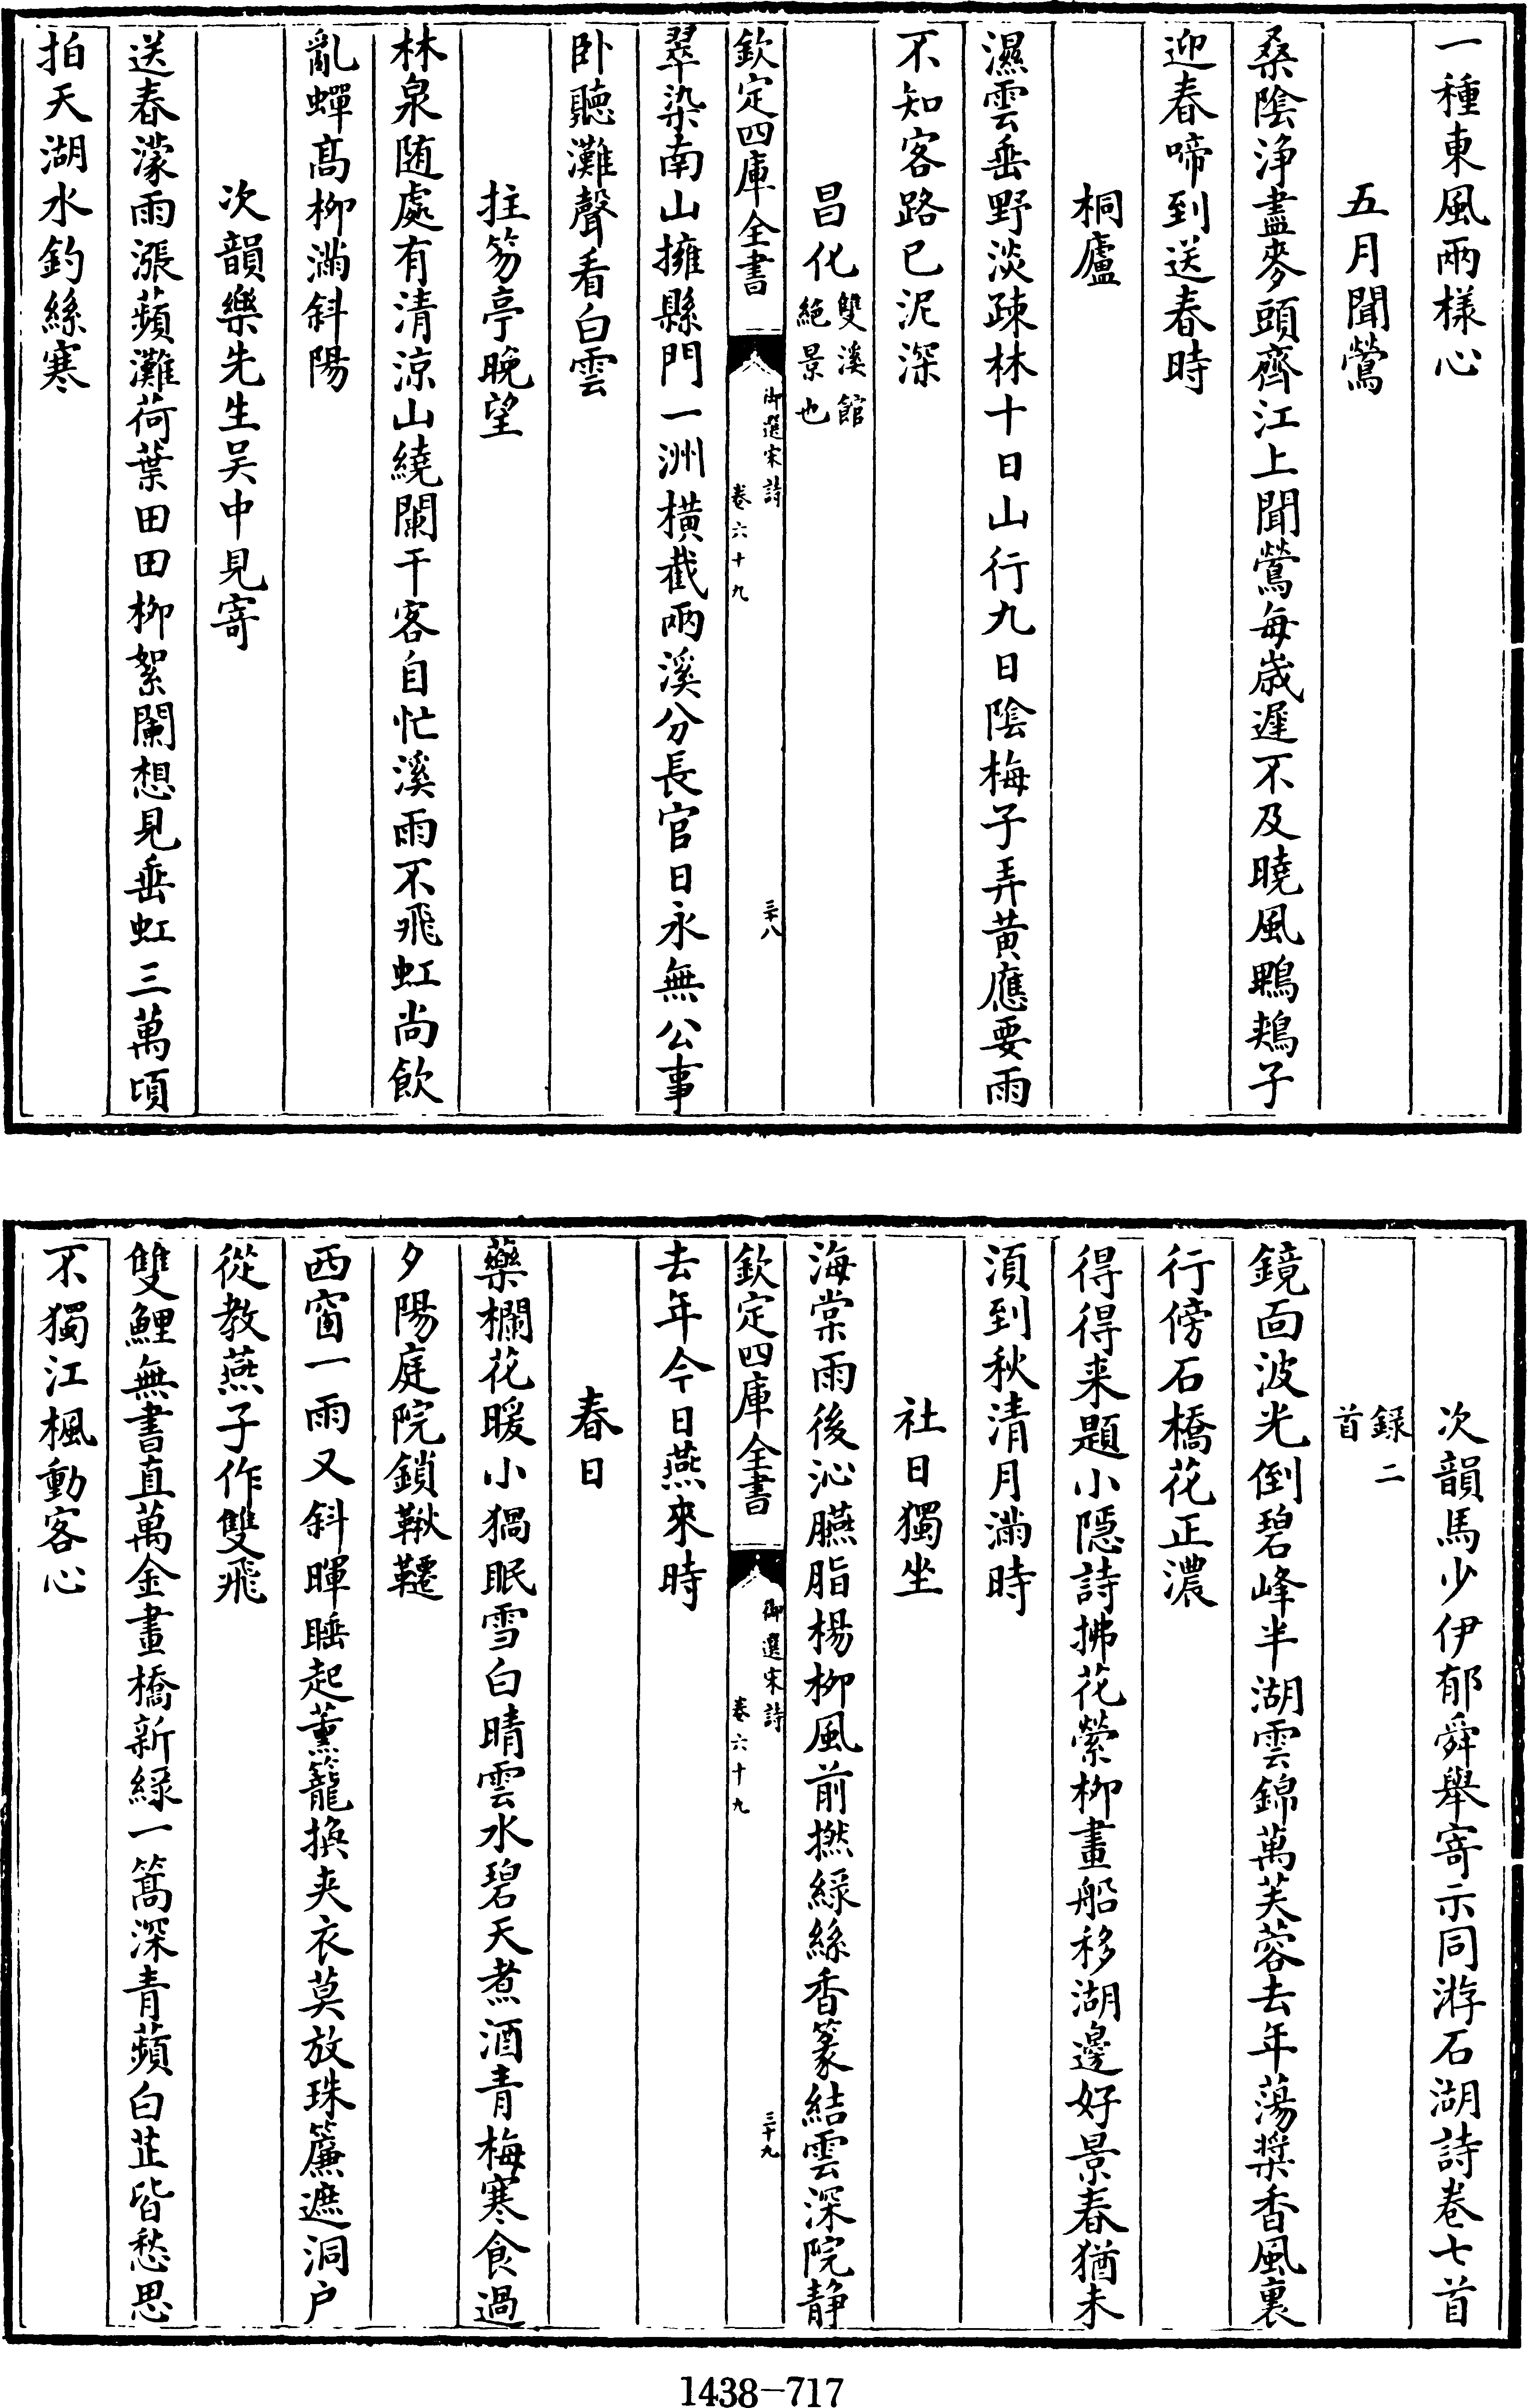 一種東風兩様心
五月聞鶯
桑隂浄盡麥頭齊江上聞鶯每歳遲不及曉風鵯鵊子
迎春啼到送春時
桐廬
濕雲垂野淡疎林十日山行九日隂梅子弄黄應要雨
不知客路已泥深
昌化雙溪館絶景也
欽定四庫全書
御選宋詩
卷六十九
三十八
翠染南山擁縣門一洲横截兩溪分長官日永無公事
卧聽灘聲看白雲
拄笏亭晚望
林泉随處有清涼山繞闌干客自忙溪雨不飛虹尚飲
亂蟬髙柳滿斜陽
次韻樂先生吴中見寄
送春濛雨漲蘋灘荷葉田田柳絮闌想見垂虹三萬頃
拍天湖水釣絲寒
次韻馬少伊郁舜舉寄示同游石湖詩卷七首
録二首
鏡面波光倒碧峰半湖雲錦萬芙蓉去年蕩槳香風裏
行傍石橋花正濃
得得来題小隠詩拂花縈柳畫船移湖邊好景春猶未
湏到秋清月滿時
社日獨坐
海棠雨後沁臙脂楊柳風前撚緑絲香篆結雲深院静
欽定四庫全書
御選宋詩
卷六十九
三十九
去年今日燕來時
春日
藥欄花暖小猧眠雪白晴雲水碧天煮酒青梅寒食過
夕陽庭院鎖鞦韆
西窗一雨又斜暉睡起薰籠換夹衣莫放珠簾遮洞户
從教燕子作雙飛
雙鯉無書直萬金畫橋新緑一篙深青蘋白芷皆愁思
不獨江楓動客心
1438—717